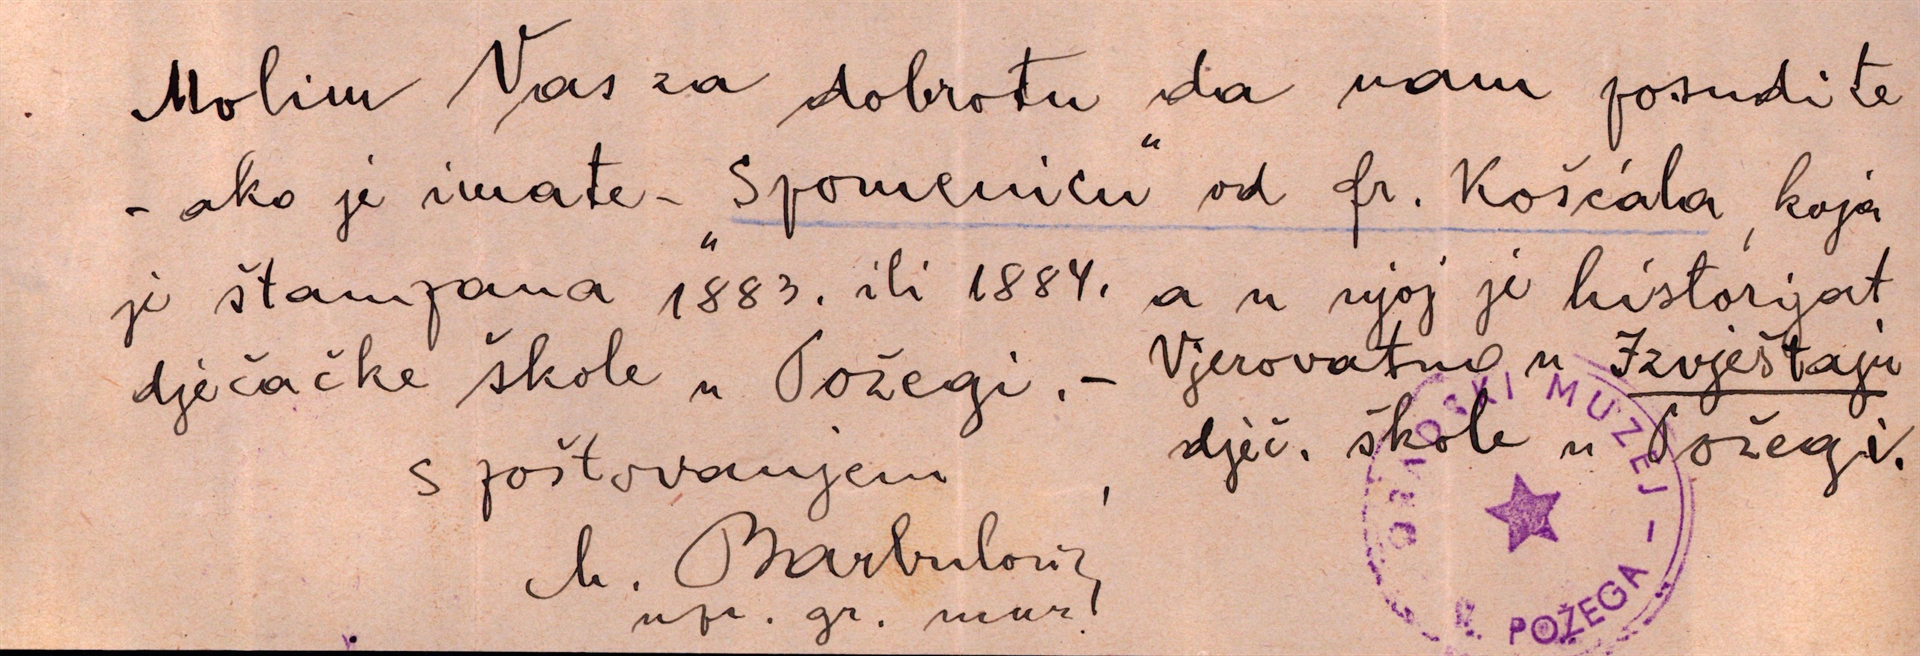 Molim Vas za dobrotu da nam posudite
- ako je imate - "Spomenicu" od fr. Košćála, koja
je štampana 1883. ili 1884. a u njoj je historijat
dječačke škole u Požegi. - Vjerovatno u Izvještaju
dječ. škole u Požegi.
s poštovanjem,
M. Barbulović
upr. gr. muz.
MUZEJ - POŽEGA